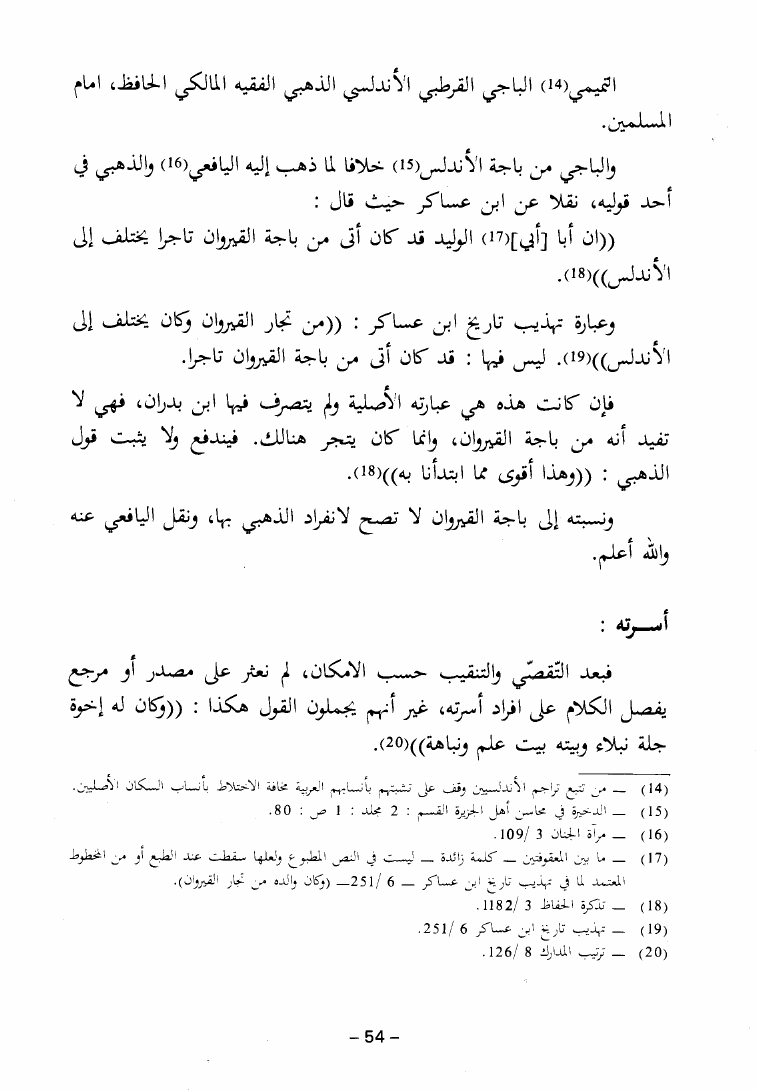 التميمي(14) الباجي القرطبي الأندلسي الذهبي الفقيه المالكي الحافظ، امام
المسلمين.
والباجي من باجة الأندلس(15) خلافا لما ذهب إليه اليافعي(16) والذهبي في
أحد قوليه، نقلا عن ابن عساكر حيث قال :
((ان أبا [أبي](17) الوليد قد كان أتى من باجة القيروان تاجرا يختلف إلى
الأندلس))(18).
وعبارة تهذيب تاريخ ابن عساكر : ((من تجار القيروان وكان يختلف إلى
الأندلس))(19). ليس فيها : قد كان أتى من باجة القيروان تاجرا.
فإن كانت هذه هي عبارته الأصلية ولم يتصرف فيها ابن بدران، فهي لا
تفيد أنه من باجة القيروان، وانما كان يتجر هنالك. فيندفع ولا يثبت قول
الذهبي : ((وهذا أقوى مما ابتدأنا به))(18).
ونسبته إلى باجة القيروان لا تصح لانفراد الذهبي بها، ونقل اليافعي عنه
والله أعلم.
أســرته :
فبعد التقصّي والتنقيب حسب الامكان، لم نعثر على مصدر أو مرجع
يفصل الكلام على افراد أسرته، غير أنهم يجملون القول هكذا : ((وكان له إخوة
جلة نبلاء وبيته بيت علم ونباهة))(20).
(14) — من تتبع تراجم الأندلسيين وقف على تشبثهم بأنسابهم العربية مخافة الاختلاط بأنساب السكان الأصليين.
(15) — الذخيرة في محاسن أهل الجزيرة القسم : 2 مجلد : 1 ص : 80.
(16) — مرآة الجنان 3 /109.
(17) — ما بين المعقوفتين — كلمة زائدة — ليست في النص المطبوع ولعلها سقطت عند الطبع أو من المخطوط
المعتمد لما في تهذيب تاريخ ابن عساكر — 6 /251— (وكان والده من تجار القيروان).
(18) — تذكرة الحفاظ 3 /1182.
(19) — تهذيب تاريخ ابن عساكر 6 /251.
(20) — ترتيب المدارك 8 /126.
- 54 -